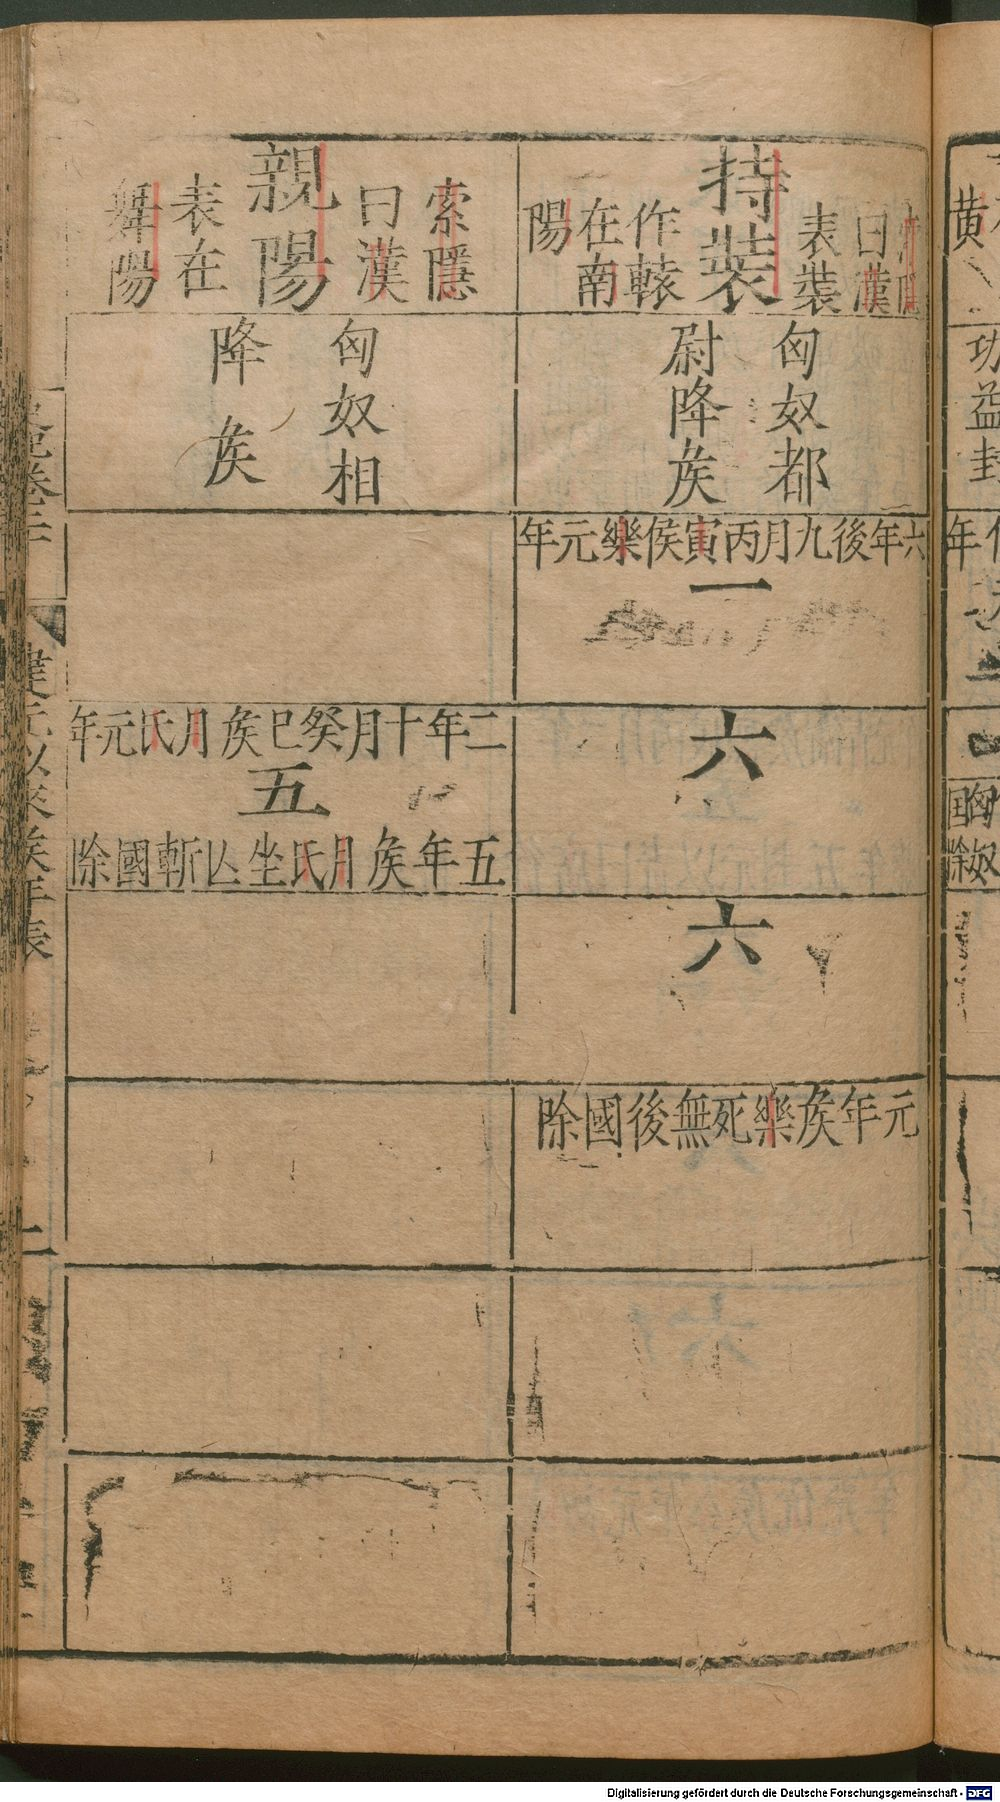 黄
功益封
年
匈奴
国除
索隱
曰漢
表裝
持裝
作轅
在南
陽
匈奴都
尉降矦
六年後九月丙寅侯樂元年
一
六
六
元年矦樂死無後國除
索隱
曰漢
親陽
表在
舞陽
匈奴相
降矦
二年十月癸巳矦月氏元年
五
五年矦月氏坐亾斬國除
建元以來矦年表
Digitalisierung gefördert durch die Deutsche Forschungsgemeinschaft - DFG